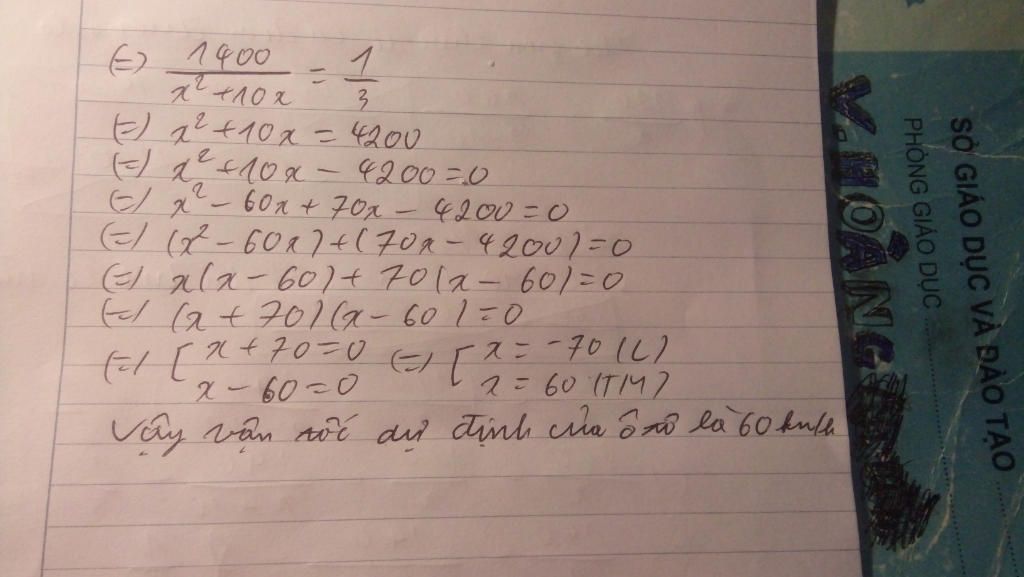 (=) 1400 / x² + 10x = 1 / 3
(=) x² + 10x = 4200
(=) x² + 10x - 4200 = 0
(=) x² - 60x + 70x - 4200 = 0
(=) (x² - 60x) + (70x - 4200) = 0
(=) x(x - 60) + 70(x - 60) = 0
(=) (x + 70)(x - 60) = 0
(=) [ x + 70 = 0 (=) [ x = -70 (L)
x - 60 = 0 x = 60 (TM)
Vậy vận tốc dự định của ô tô là 60 km/h
SỞ GIÁO DỤC VÀ ĐÀO TẠO
PHÒNG GIÁO DỤC
V.HOÀNG